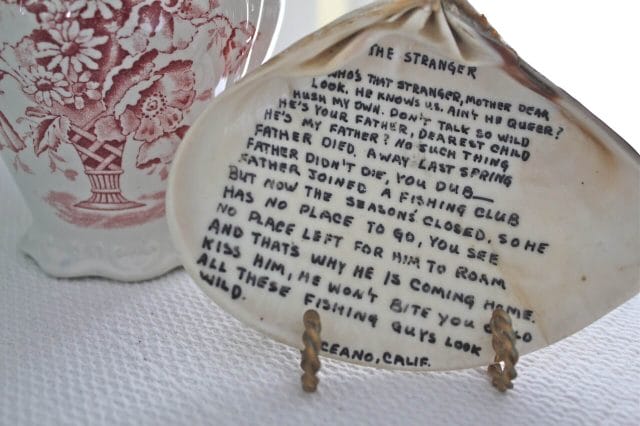 THE STRANGER
WHO'S THAT STRANGER, MOTHER DEAR
LOOK. HE KNOWS US. AIN'T HE QUEER?
HUSH MY OWN. DON'T TALK SO WILD
HE'S YOUR FATHER, DEAREST CHILD
HE'S MY FATHER? NO SUCH THING
FATHER DIED. AWAY LAST SPRING
FATHER DIDN'T DIE, YOU DUB—
FATHER JOINED A FISHING CLUB
BUT NOW THE SEASONS' CLOSED. SO HE
HAS NO PLACE TO GO, YOU SEE
NO PLACE LEFT FOR HIM TO ROAM
AND THAT'S WHY HE IS COMING HOME.
KISS HIM, HE WON'T BITE YOU CHILD
ALL THESE FISHING GUYS LOOK
WILD.
OCEANO, CALIF.